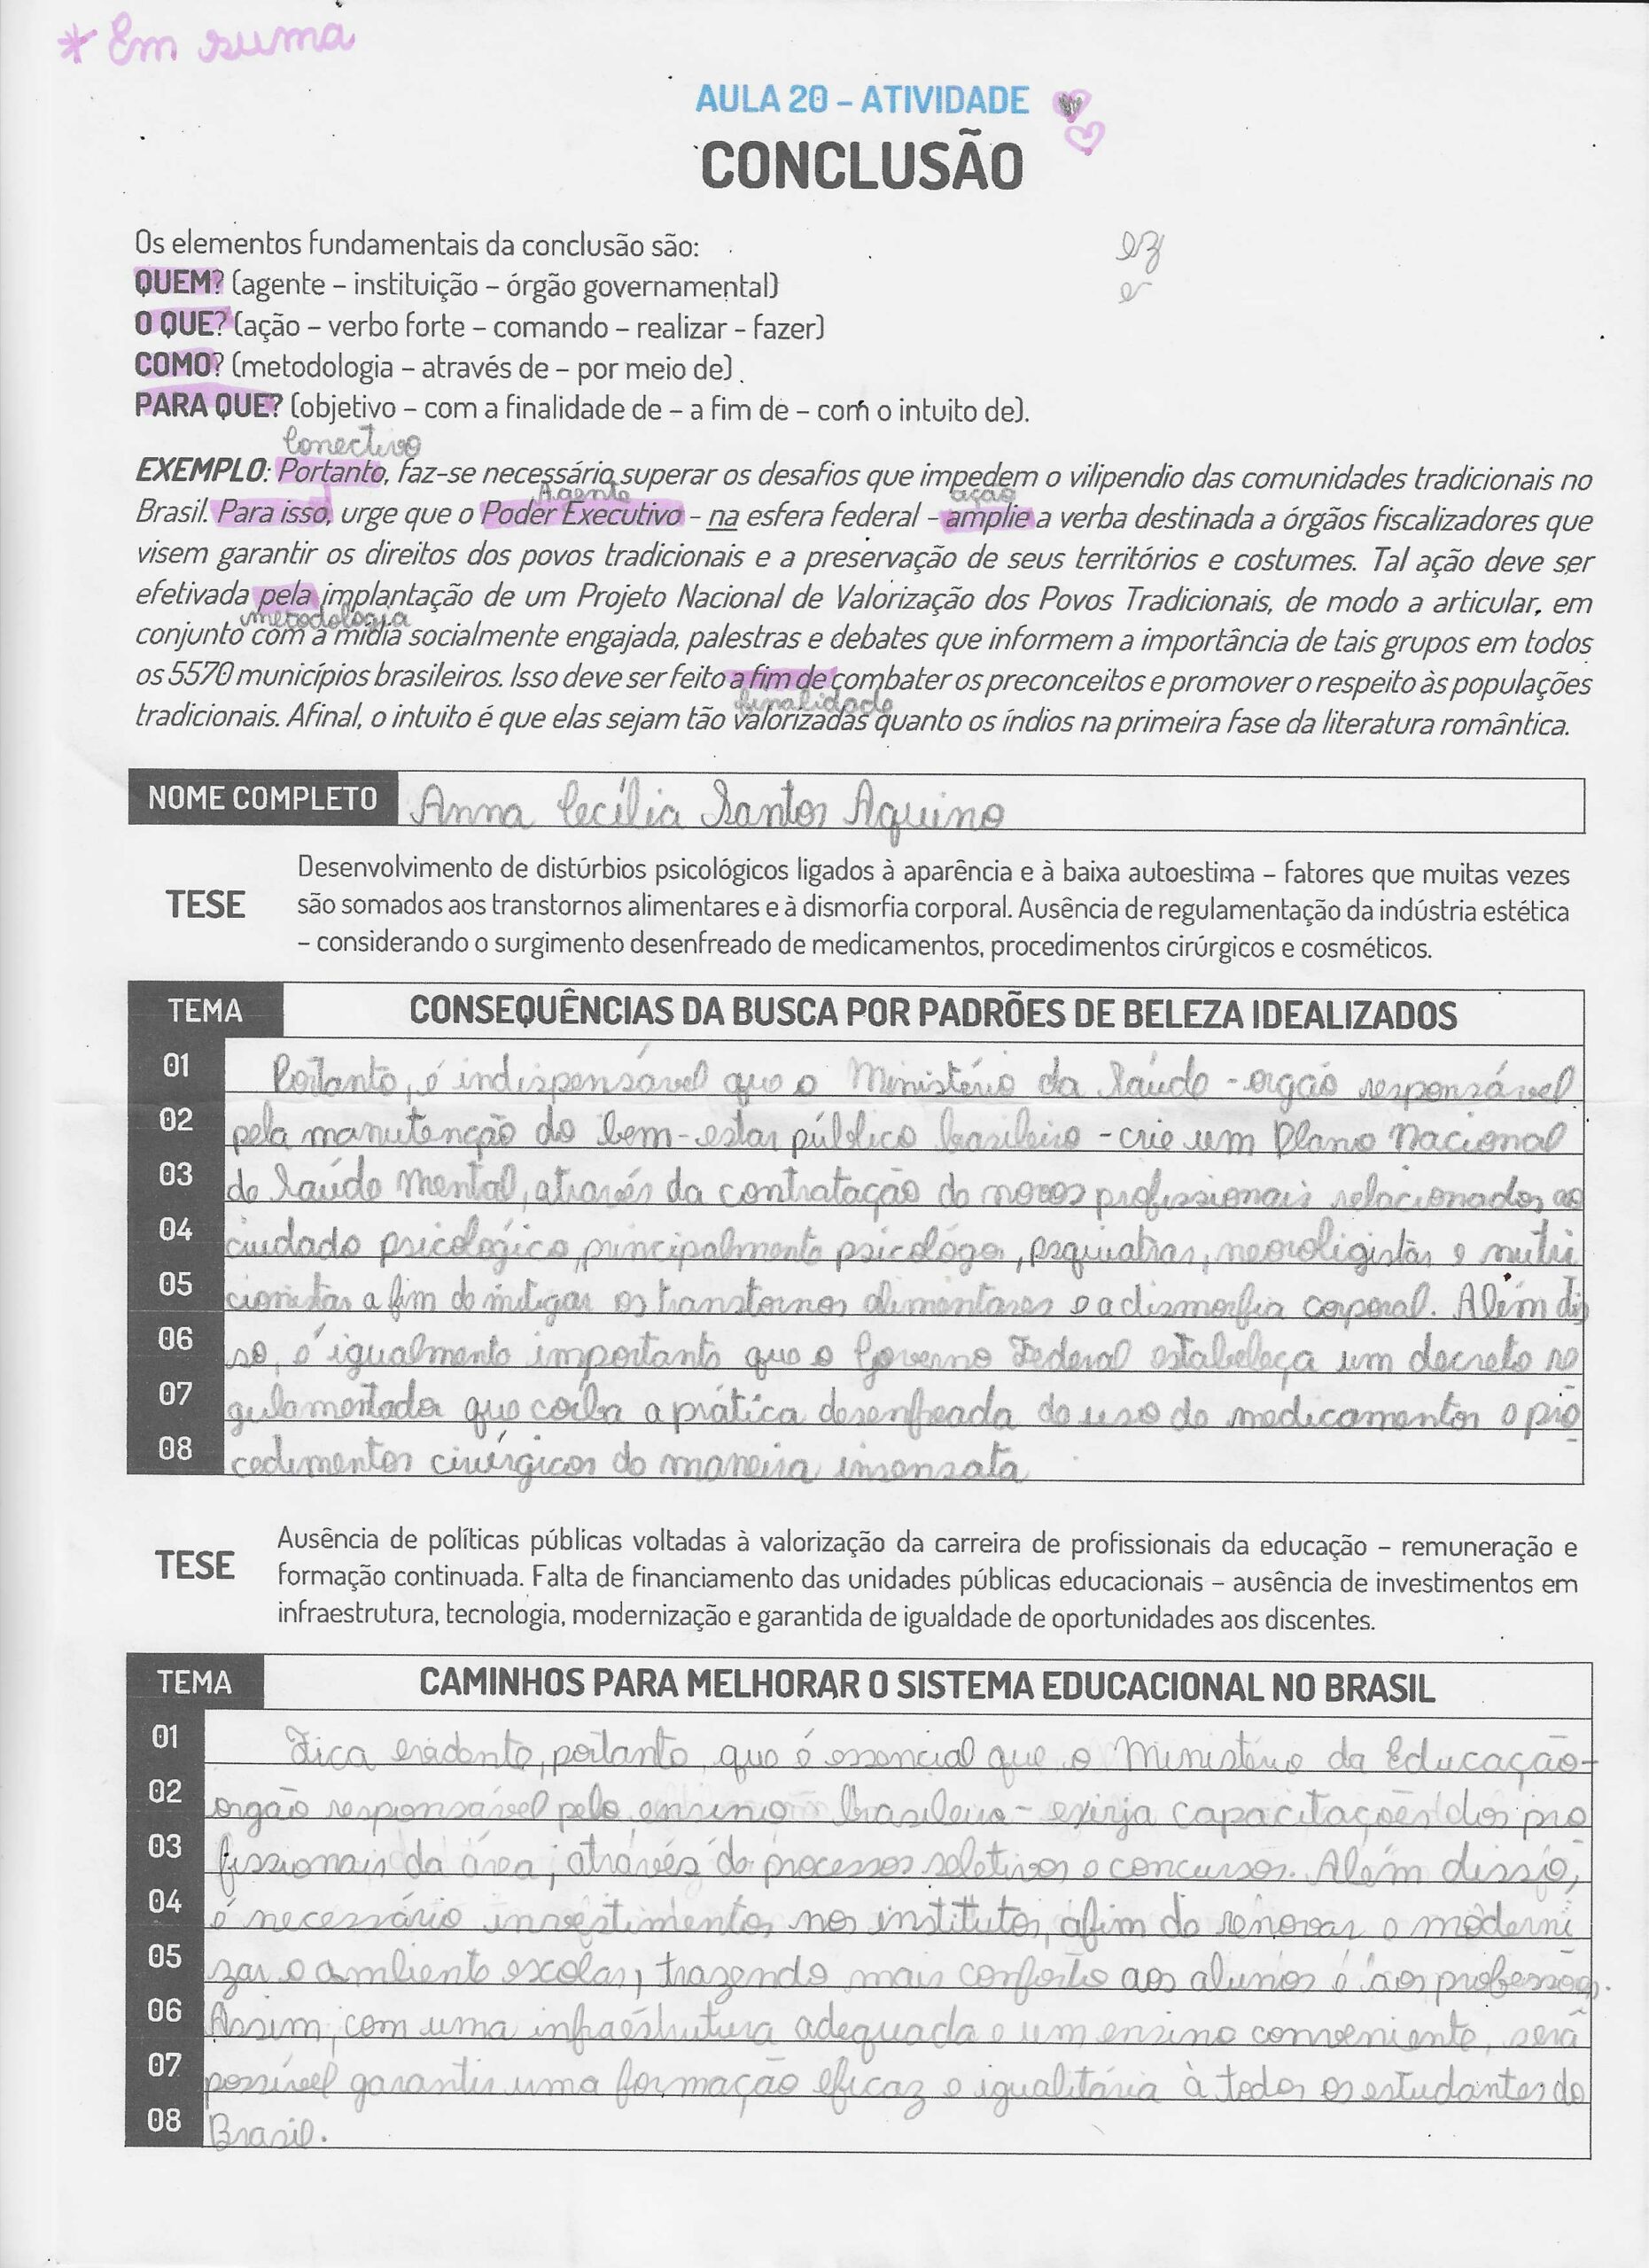 * Em suma
AULA 20 – ATIVIDADE
CONCLUSÃO
Os elementos fundamentais da conclusão são:
QUEM? (agente – instituição – órgão governamental)
O QUE? (ação – verbo forte – comando – realizar - fazer)
COMO? (metodologia – através de – por meio de).
PARA QUE? (objetivo – com a finalidade de – a fim de – com o intuito de).
Conectivo
EXEMPLO: Portanto, faz-se necessário superar os desafios que impedem o vilipendio das comunidades tradicionais no
Agente ação
Brasil. Para isso, urge que o Poder Executivo – na esfera federal – amplie a verba destinada a órgãos fiscalizadores que
visem garantir os direitos dos povos tradicionais e a preservação de seus territórios e costumes. Tal ação deve ser
efetivada pela implantação de um Projeto Nacional de Valorização dos Povos Tradicionais, de modo a articular, em
metodologia
conjunto com a mídia socialmente engajada, palestras e debates que informem a importância de tais grupos em todos
os 5570 municípios brasileiros. Isso deve ser feito a fim de combater os preconceitos e promover o respeito às populações
finalidade
tradicionais. Afinal, o intuito é que elas sejam tão valorizadas quanto os índios na primeira fase da literatura romântica.
NOME COMPLETO Anna Cecília Santos Aquino
Desenvolvimento de distúrbios psicológicos ligados à aparência e à baixa autoestima – fatores que muitas vezes
TESE são somados aos transtornos alimentares e à dismorfia corporal. Ausência de regulamentação da indústria estética
– considerando o surgimento desenfreado de medicamentos, procedimentos cirúrgicos e cosméticos.
TEMA CONSEQUÊNCIAS DA BUSCA POR PADRÕES DE BELEZA IDEALIZADOS
01 Portanto, é indispensável que o Ministério da Saúde - orgão responsável
02 pela manutenção do bem-estar público brasileiro - crie um Plano Nacional
03 de Saúde Mental, através da contratação de novos profissionais relacionados ao
04 cuidado psicológico, principalmente psicólogo, psquiatras, neoroligistas e nutri
05 cionistas a fim de mitigar os transtornos alimentares e a dismorfia corporal. Além dis
06 so, é igualmente importante que o Governo Federal estabeleça um decreto re
07 gulamentador que coíba a prática desenfreada do uso de medicamentos e pro
08 cedimentos cirúrgicos de maneira insensata
Ausência de políticas públicas voltadas à valorização da carreira de profissionais da educação – remuneração e
TESE formação continuada. Falta de financiamento das unidades públicas educacionais – ausência de investimentos em
infraestrutura, tecnologia, modernização e garantida de igualdade de oportunidades aos discentes.
TEMA CAMINHOS PARA MELHORAR O SISTEMA EDUCACIONAL NO BRASIL
01 Fica evidente, portanto, que é essencial que o Ministério da Educação-
02 orgão responsável pelo ensino brasileiro - exirja capacitações dos pro
03 fissionais da área, através de processos seletivos e concursos. Além dissio,
04 é necessário investimentos nos institutos, afim de renovar e moderni
05 zar o ambiente escolar, trazendo mais conforto aos alunos e aos professores.
06 Assim, com uma infraestrutura adequada e um ensino conveniente, será
07 possível garantir uma formação eficaz e igualitária à todos os estudantes do
08 Brasil.